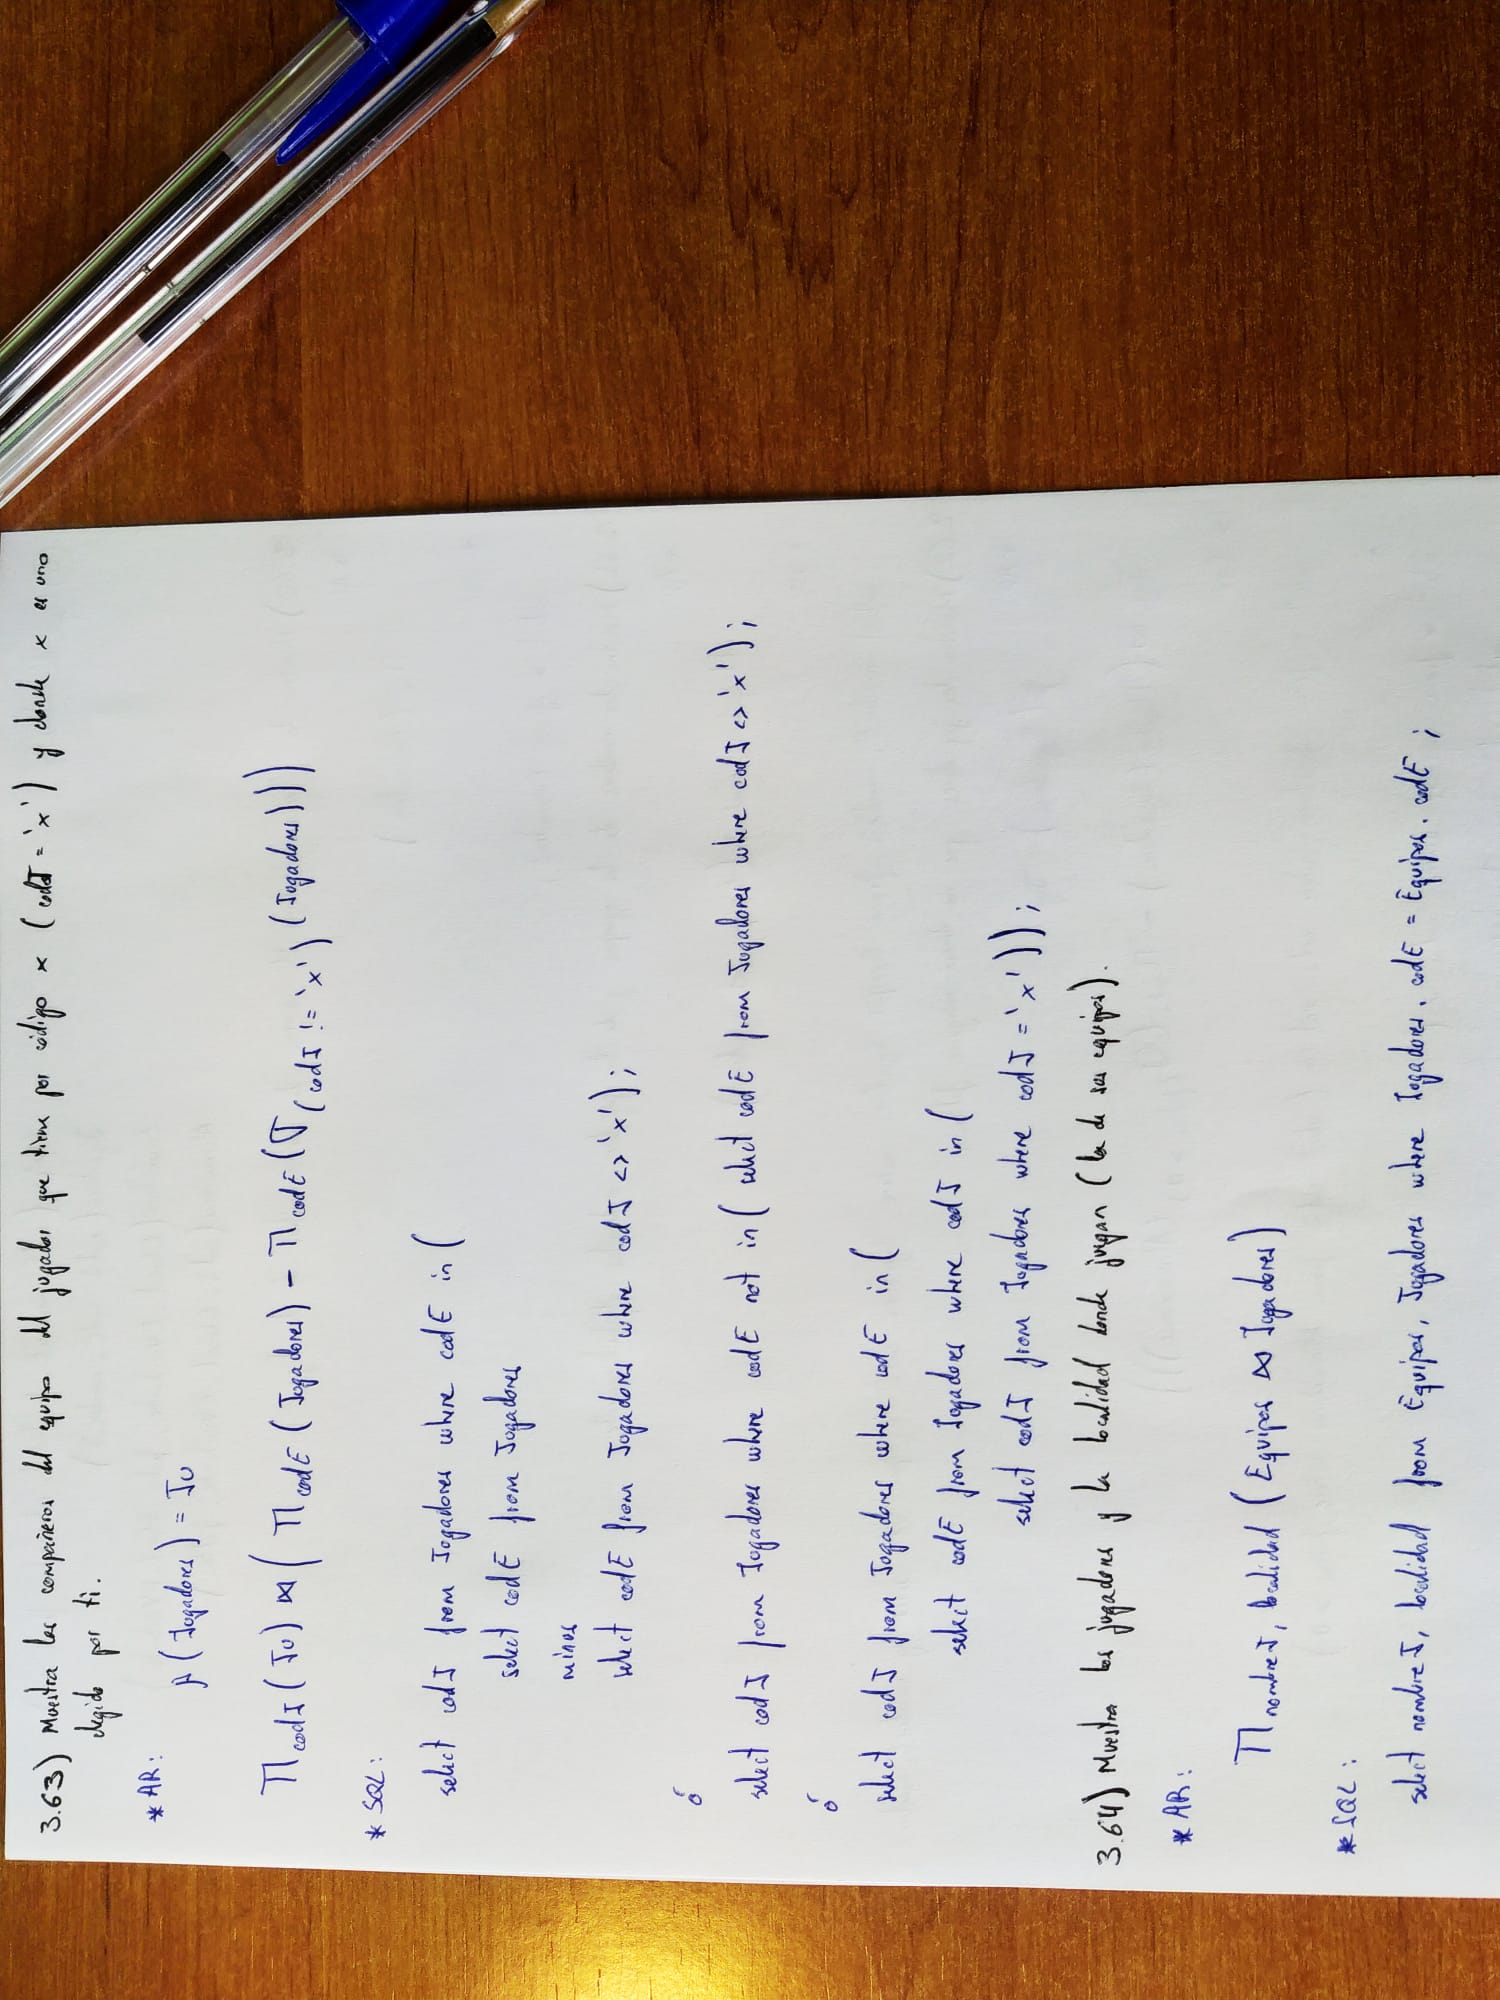 3.63) Muestra los compañeros del equipo del jugador que tiene por código x (codJ = 'x') y donde x es uno
elegido por ti.
* AR:
ρ (Jugadores) = JU
π codJ (JU) ⋈ ( π codE (Jugadores) - π codE ( σ (codJ != 'x') (Jugadores))))
* SQL:
select codJ from Jugadores where codE in (
select codE from Jugadores
minus
select codE from Jugadores where codJ <> 'x');
ó
select codJ from Jugadores where codE not in ( select codE from Jugadores where codJ <> 'x');
ó
select codJ from Jugadores where codE in (
select codE from Jugadores where codJ in (
select codJ from Jugadores where codJ = 'x')));
3.64) Muestra los jugadores y la localidad donde juegan (la de sus equipos).
* AR:
π nombreJ, localidad ( Equipos ⋈ Jugadores)
* SQL:
select nombreJ, localidad from Equipos, Jugadores where Jugadores.codE = Equipos.codE;